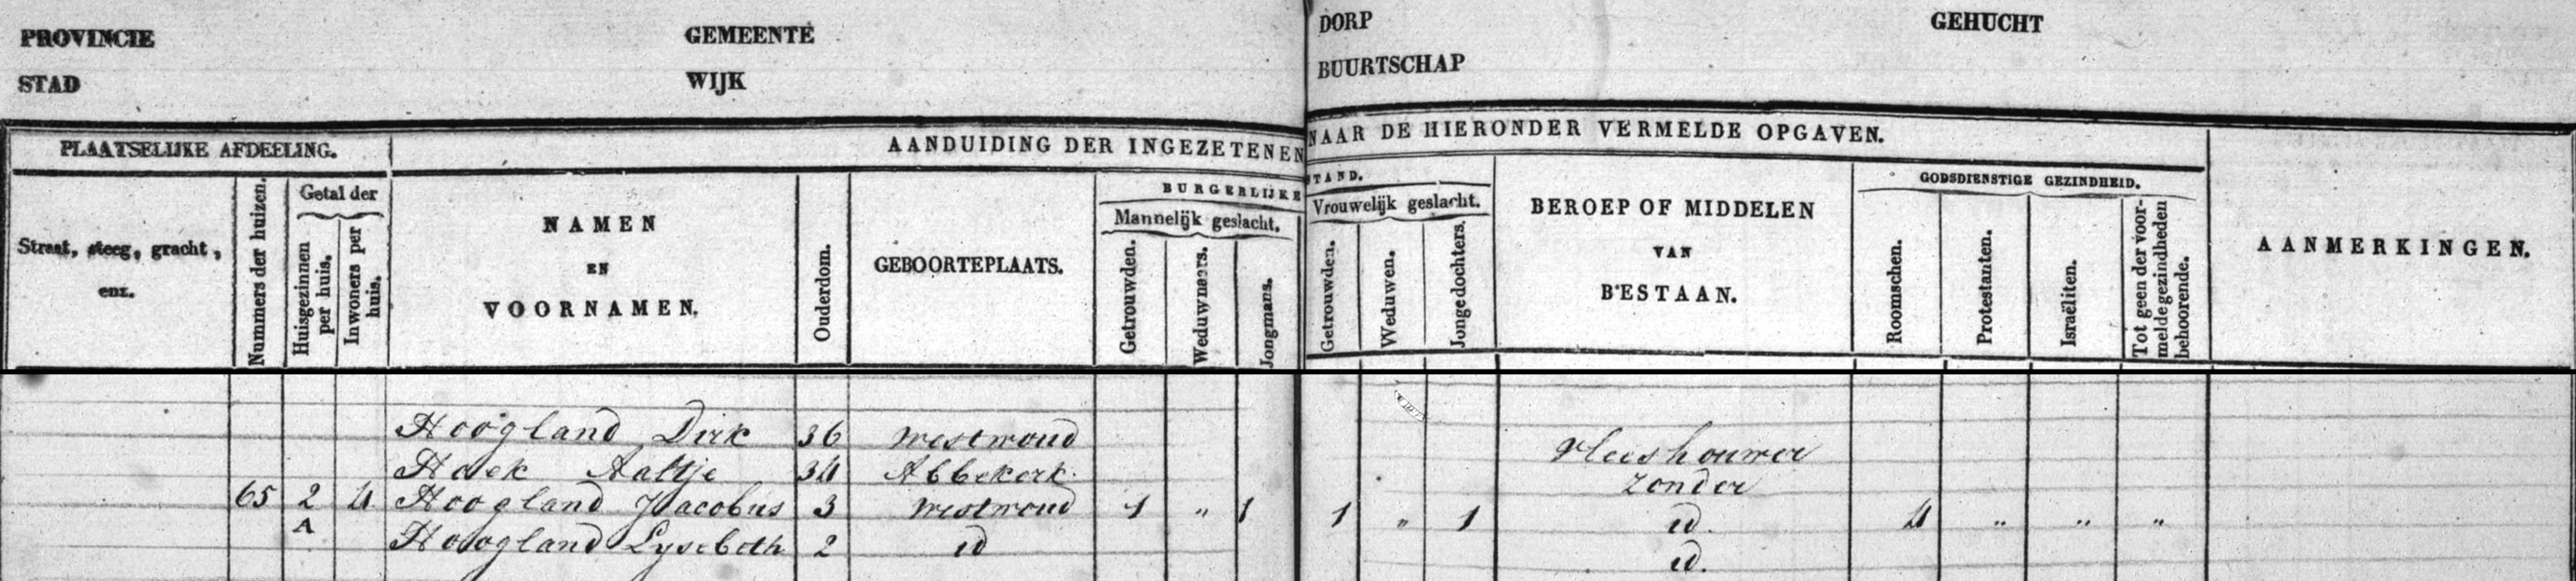 PROVINCIE GEMEENTE DORP GEHUCHT
STAD WIJK BUURTSCHAP
PLAATSELIJKE AFDEELING. AANDUIDING DER INGEZETENEN NAAR DE HIERONDER VERMELDE OPGAVEN.
Straat, steeg, gracht,
enz.
Nummers der huizen.
Getal der
Huisgezinnen
per huis.
Inwoners per
huis.
NAMEN
EN
VOORNAMEN.
Ouderdom.
GEBOORTEPLAATS.
BURGERLIJKE STAND.
Mannelijk geslacht.
Getrouwden.
Weduwnaars.
Jongmans.
Vrouwelijk geslacht.
Getrouwden.
Weduwen.
Jongedochters.
BEROEP OF MIDDELEN
VAN
BESTAAN.
GODSDIENSTIGE GEZINDHEID.
Roomschen.
Protestanten.
Israëliten.
Tot geen der voor-
melde gezindheden
behoorende.
AANMERKINGEN.
Hoogland Dirk 36 Westwoud Vleeshouwer
Hoek Aaltje 34 Abbekerk. zonder
65 2 4 Hoogland Jacobus 3 Westwoud 1 " 1 1 " 1 id. 4 " " "
A Hoogland Lysebeth 2 id id.